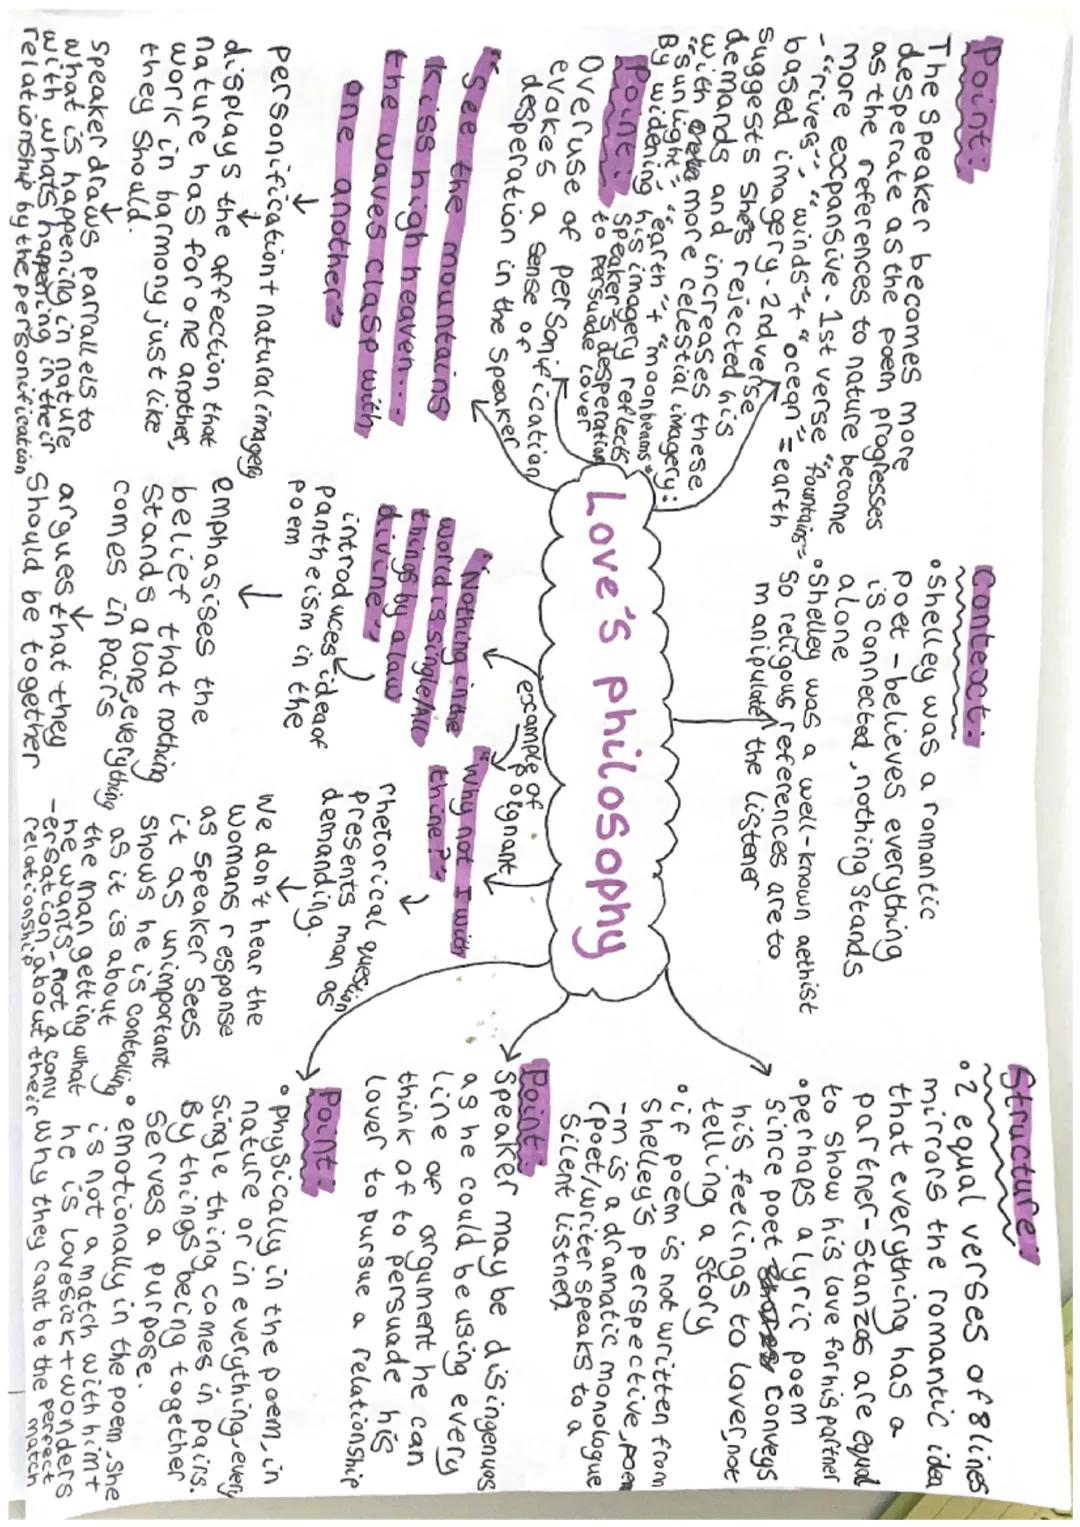 Point:
The speaker becomes more
desperate as the poem progresses
as the references to nature become
more expansive - 1st verse "fountains"
- "rivers", "winds" + "ocean" = earth
based imagery. 2nd verse
suggests she's rejected his
demands and increases these
with more celestial imagery:
"sunlight" "earth" + "moonbeams"
By widening his imagery reflects
speaker's desperation
to persuade lover
Point:
Overuse of personification
evokes a sense of
desperation in the speaker
"See the mountains
kiss high heaven...
the waves clasp with
one another"
personification + natural imagery
displays the affection that
nature has for one another,
work in harmony just like
they should.
Speaker draws parrallels to
what is happening in nature
with whats happening in their
relationship by the personification
Context:
• Shelley was a romantic
poet - believes everything
is connected, nothing stands
alone
• Shelley was a well-known aethist
so religous references are to
manipulate the listener
Love's philosophy
example of poignant
"Nothing in the
world is single/All
things by a law
divine"
introduces idea of
pantheism in the
poem
emphasises the
belief that nothing
stands alone, everything
comes in pairs
argues that they
should be together
"Why not I with
thine?"
rhetorical question
presents man as
demanding.
We don't hear the
womans response
as speaker sees
it as unimportant
shows he is controlling
as it is about
the man getting what
he wants - not a conv
-ersation about their
relationship
Structure:
• 2 equal verses of 8 lines
mirrors the romantic idea
that everything has a
partner - stanzas are equal
to show his love for his partner
• perhaps a lyric poem
since poet conveys
his feelings to lover, not
telling a story
• if poem is not written from
Shelley's perspective, poem
-m is a dramatic monologue
(poet/writer speaks to a
silent listner)
Point:
speaker may be disingenuos
as he could be using every
line of argument he can
think of to persuade his
lover to pursue a relationship
Point:
• physically in the poem, in
nature or in everything, every
single thing comes in pairs.
By things being together
serves a purpose.
• emotionally in the poem, she
is not a match with him +
he is lovesick + wonders
why they cant be the perfect
match